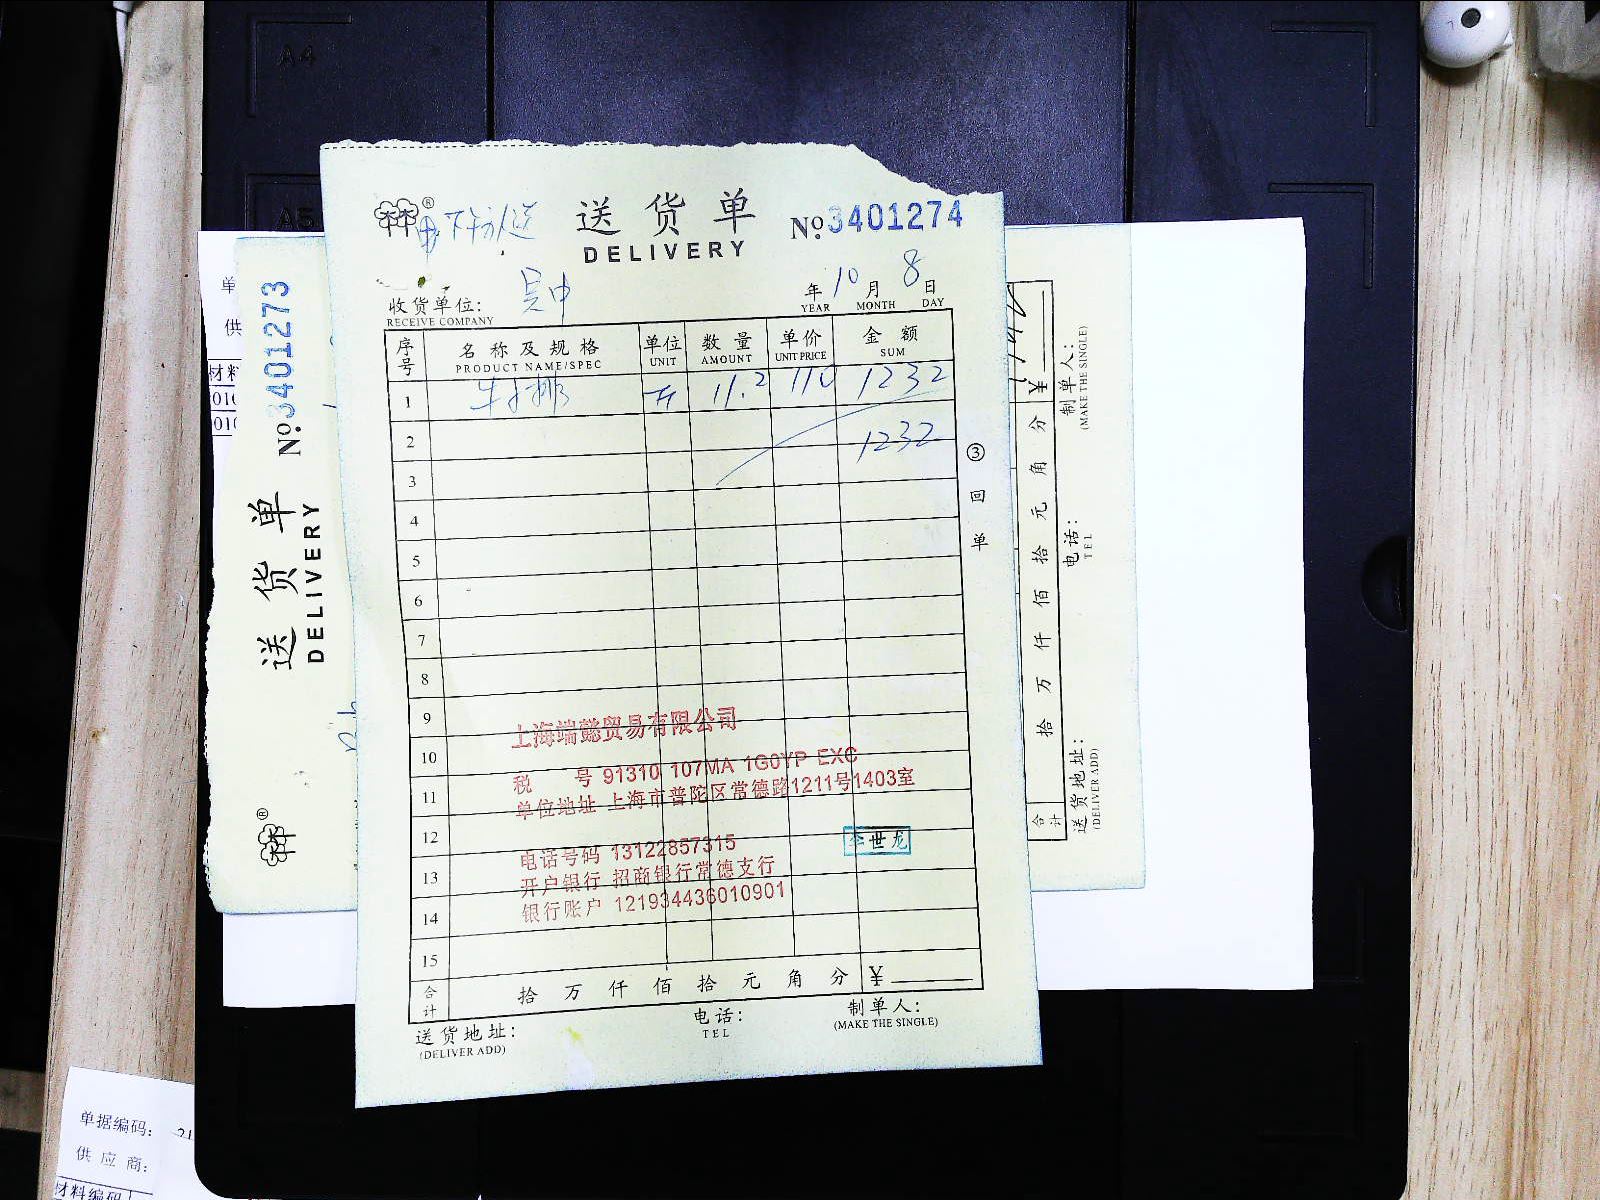 A4
A5
下午送
送货单
DELIVERY
No. 3401274
收货单位: 吴中
RECEIVE COMPANY
年 10 月 8 日
YEAR MONTH DAY
序号 名称及规格 单位 数量 单价 金额
PRODUCT NAME/SPEC UNIT AMOUNT UNIT PRICE SUM
1 牛排 斤 11.2 110 1232
2 1232
3
4
5
6
7
8
9
10
11
12
13
14
15
上海端懿贸易有限公司
税 号 91310 107MA 1G0YP EXC
单位地址 上海市普陀区常德路1211号1403室
李世龙
电话号码 13122857315
开户银行 招商银行常德支行
银行账户 121934436010901
合计 拾 万 仟 佰 拾 元 角 分 ¥
送货地址: 电话: 制单人:
(DELIVER ADD) TEL (MAKE THE SINGLE)
③ 回单
No. 3401273
送货单
DELIVERY
合计 拾 万 仟 佰 拾 元 角 分 ¥
送货地址: 电话: 制单人:
(DELIVER ADD) TEL (MAKE THE SINGLE)
单
供
材料
010
010
单据编码: 21
供应商:
材料编码